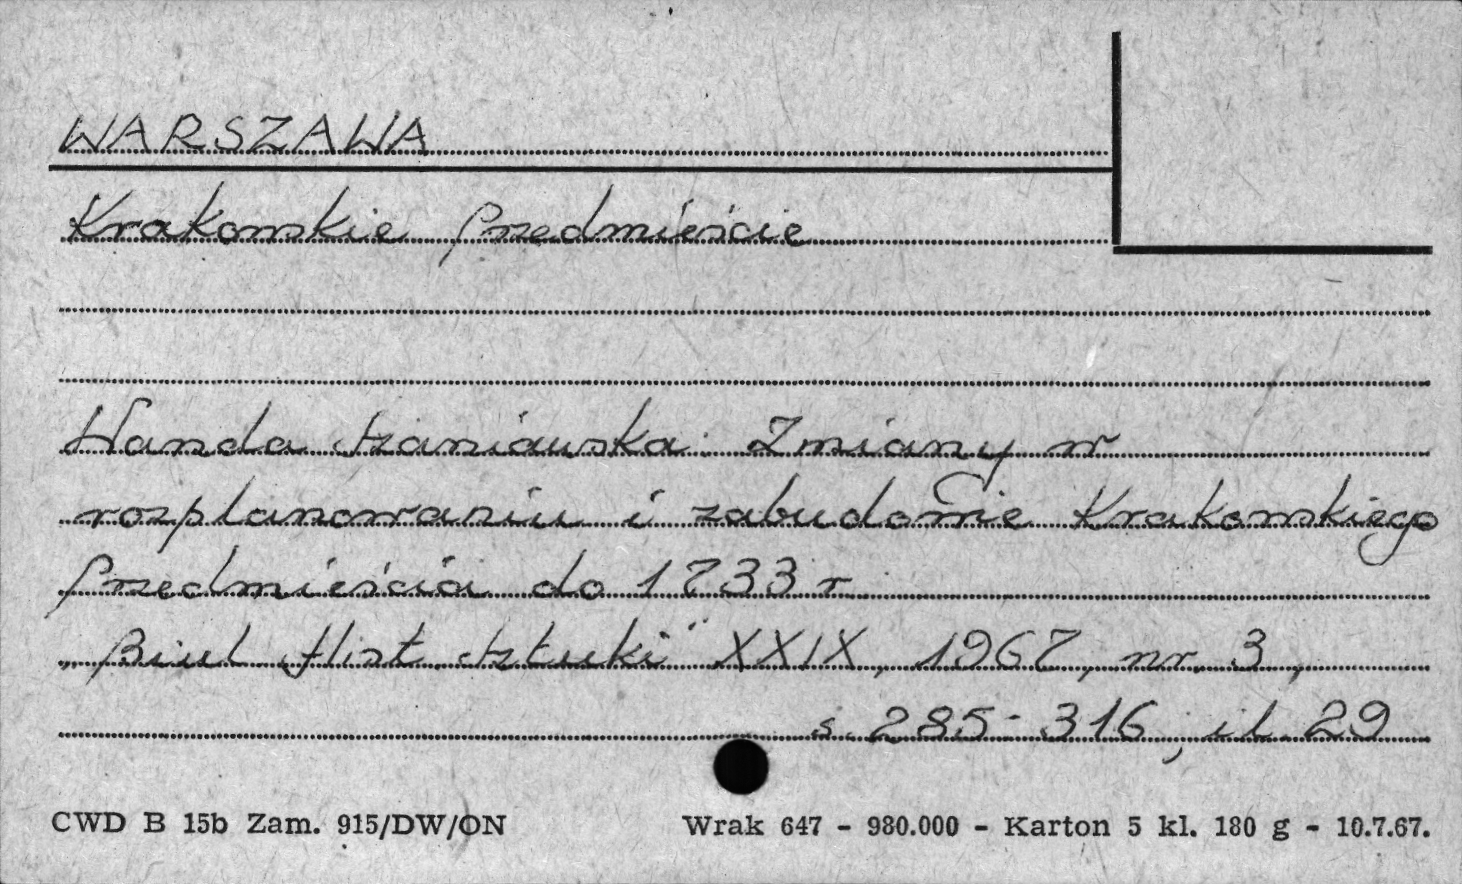 WARSZAWA
Krakowskie Przedmieście
Wanda Szaniawska: Zmiany w
rozplanowaniu i zabudowie Krakowskiego
Przedmieścia do 1733 r.
„Biul Hist. Sztuki" XXIX, 1967, nr. 3,
s. 285-316, il. 29
CWD B 15b Zam. 915/DW/ON Wrak 647 - 980.000 - Karton 5 kl. 180 g - 10.7.67.